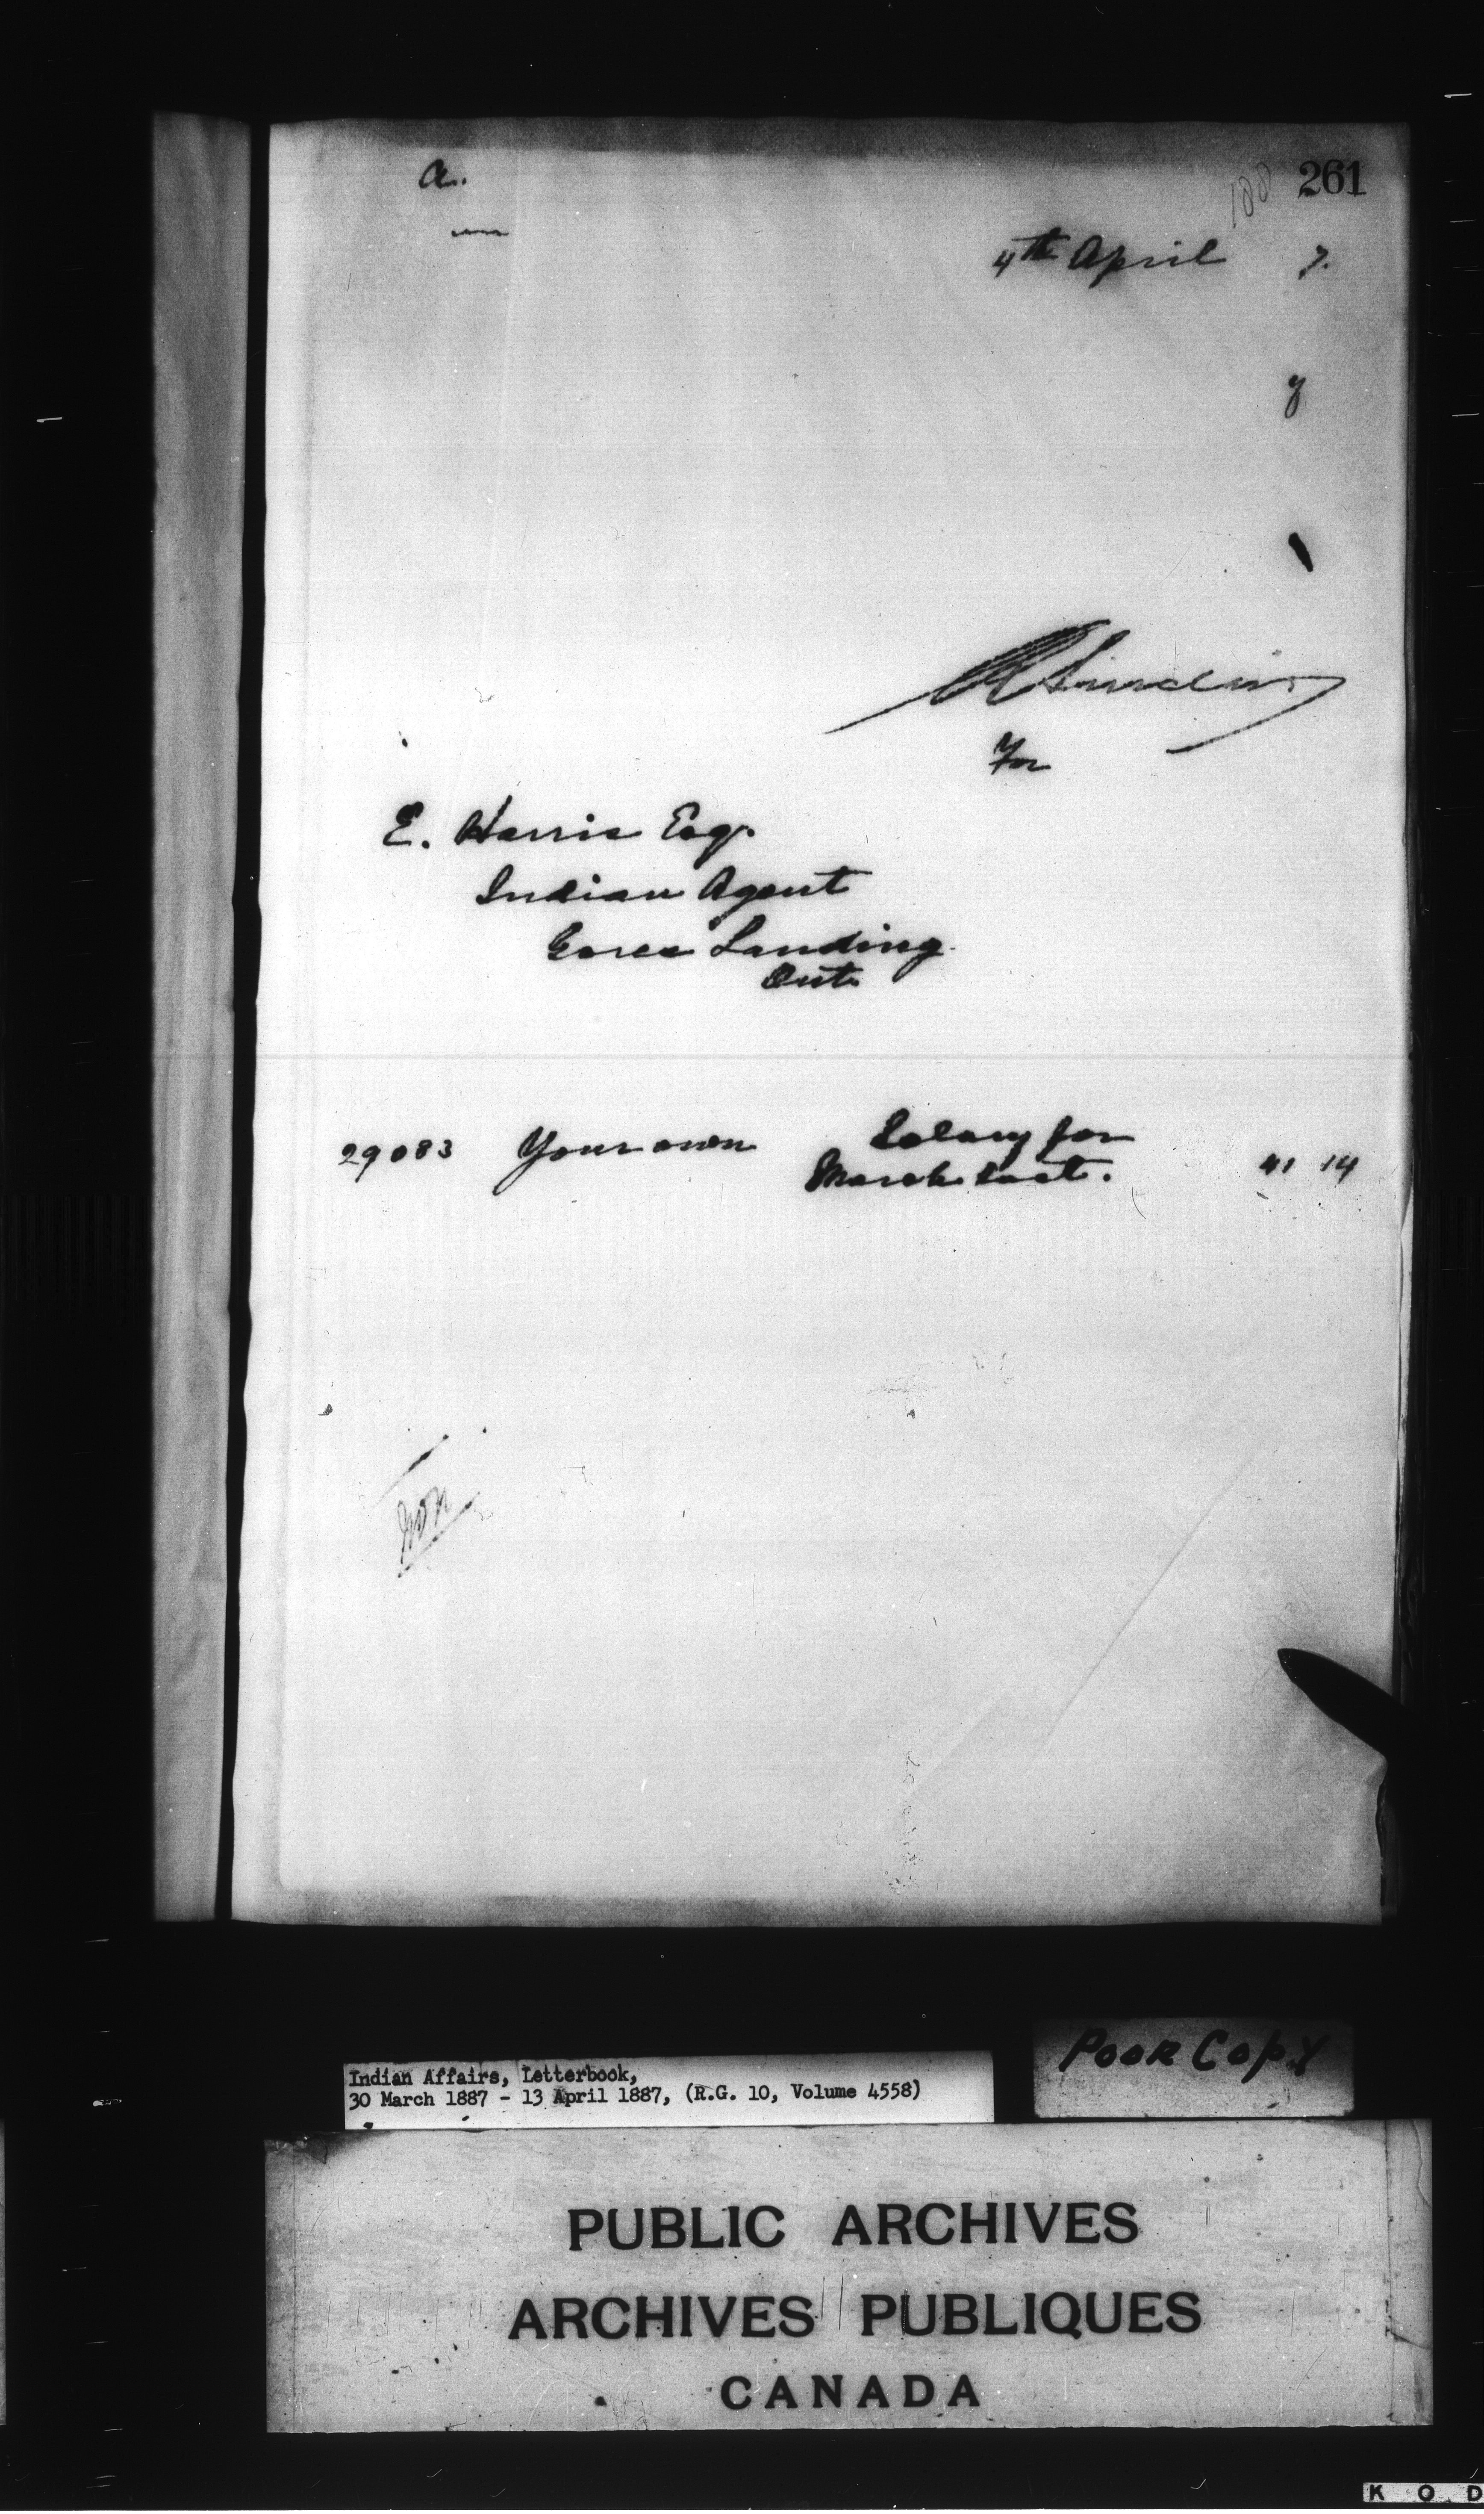 a.
188 261
4th April 7.
y
For
E. Harris Esq.
Indian Agent
Gores Landing
Ont.
29083 Your own Salary for
March last. 41 14
Poor Copy
Indian Affairs, Letterbook,
30 March 1887 - 13 April 1887, (R.G. 10, Volume 4558)
PUBLIC ARCHIVES
ARCHIVES PUBLIQUES
CANADA
K O D